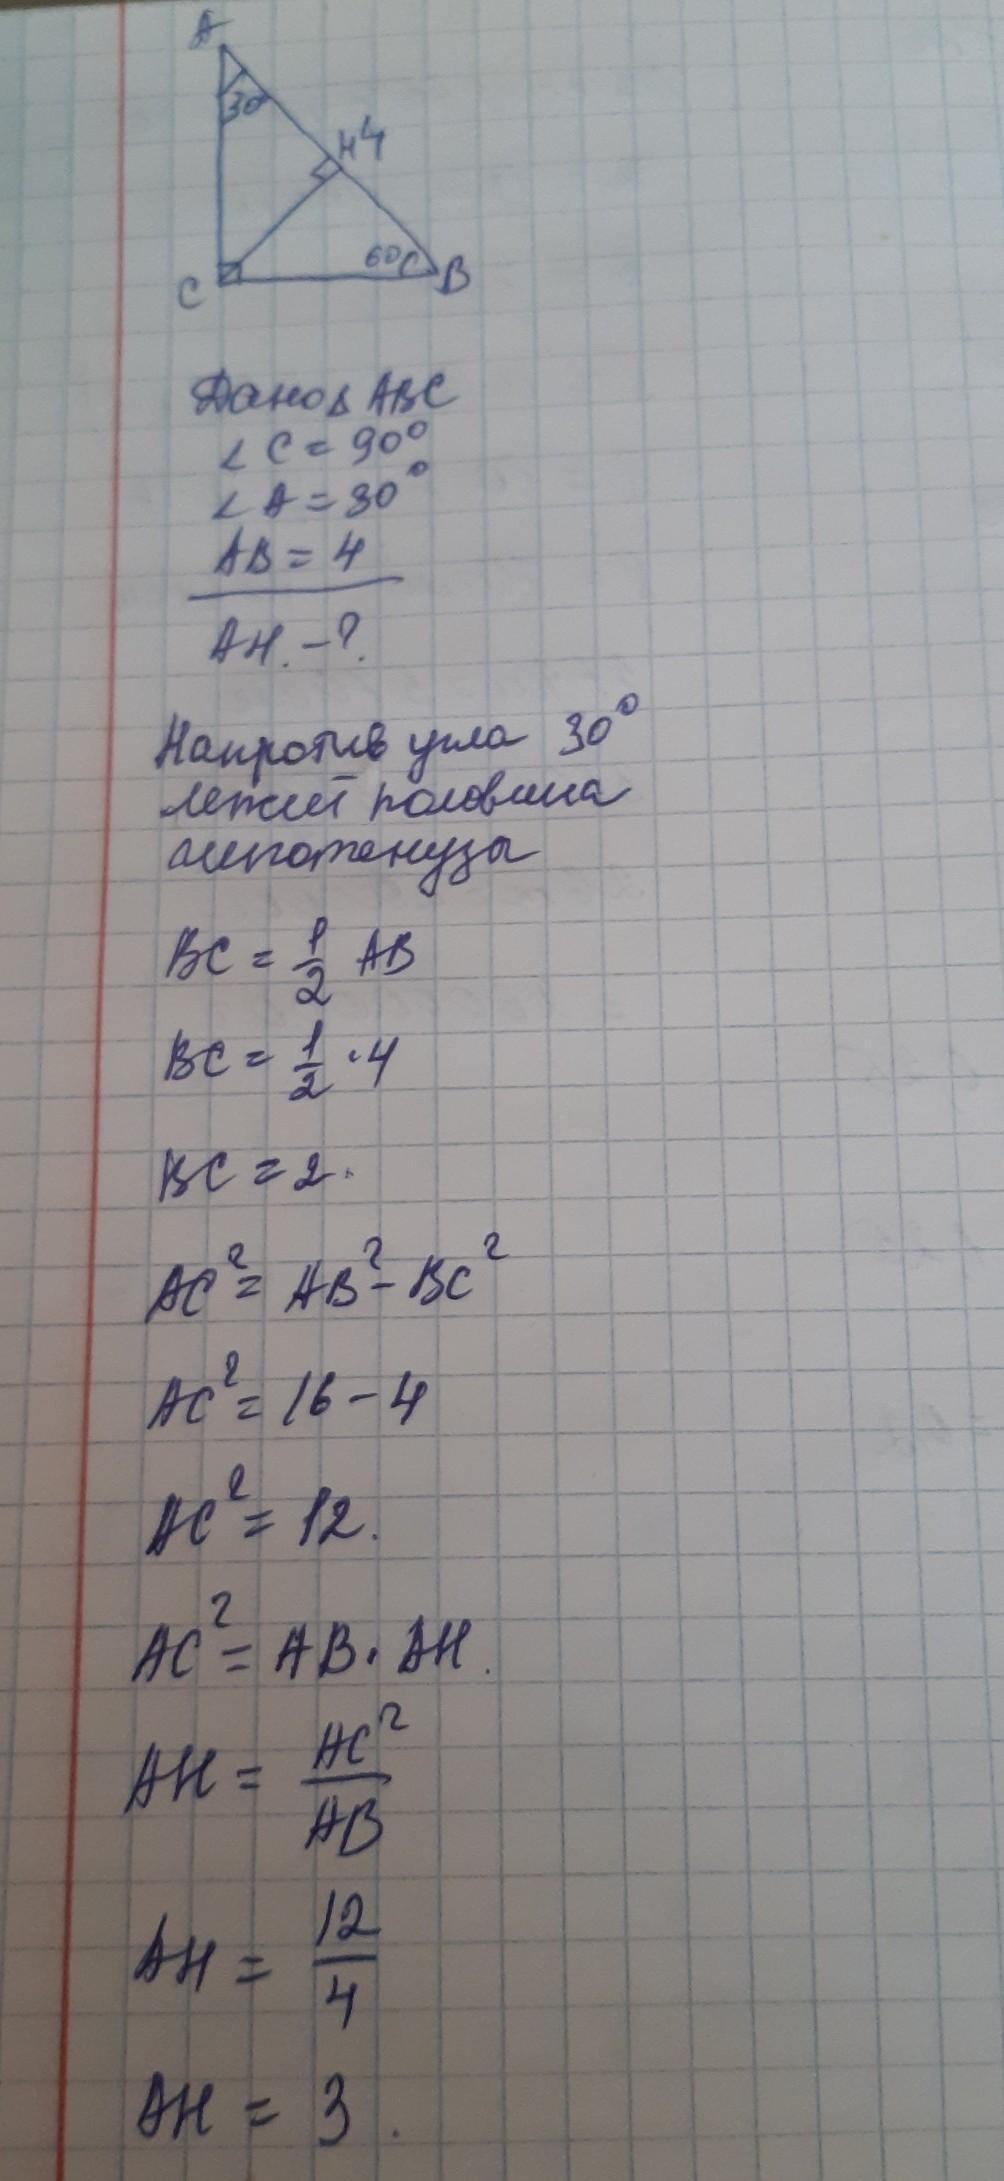 A
30
H 4
60
C
B
Дано Δ ABC
∠ C = 90°
∠ A = 30°
AB = 4
AH. - ?
Напротив угла 30°
лежит половина
гипотенузы
BC = 1/2 AB
BC = 1/2 · 4
BC = 2.
AC² = AB² - BC²
AC² = 16 - 4
AC² = 12.
AC² = AB · AH.
AH = AC²/AB
AH = 12/4
AH = 3.